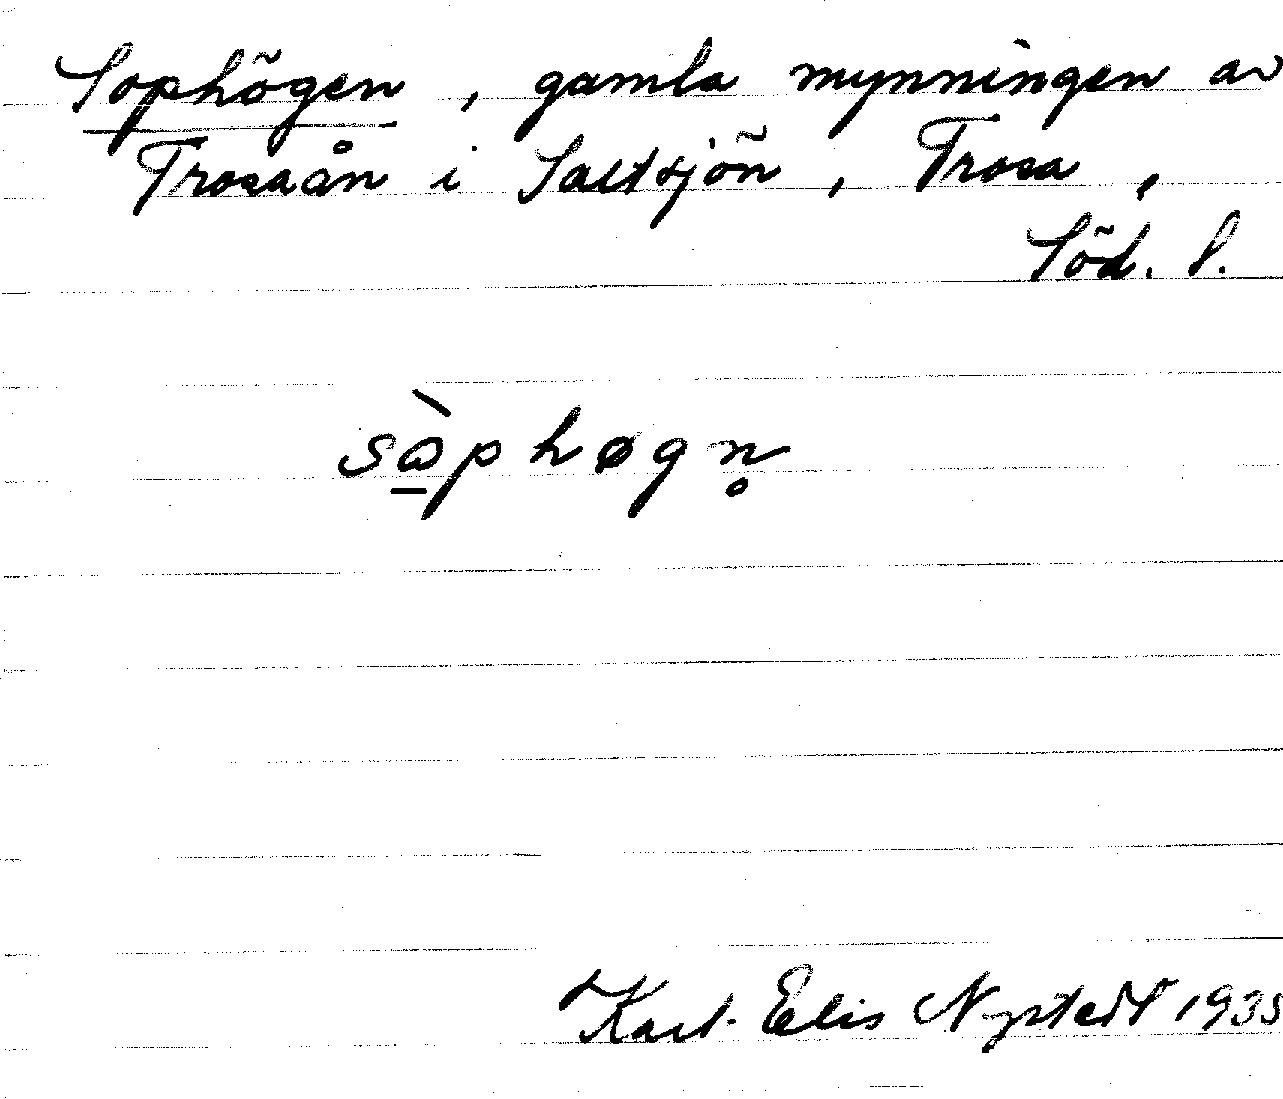 Sophögen, gamla mynningen av
Trosaån i Saltsjön, Trosa,
Söd. l.
sòphøgn̥
Karl-Elis Nystedt 1935